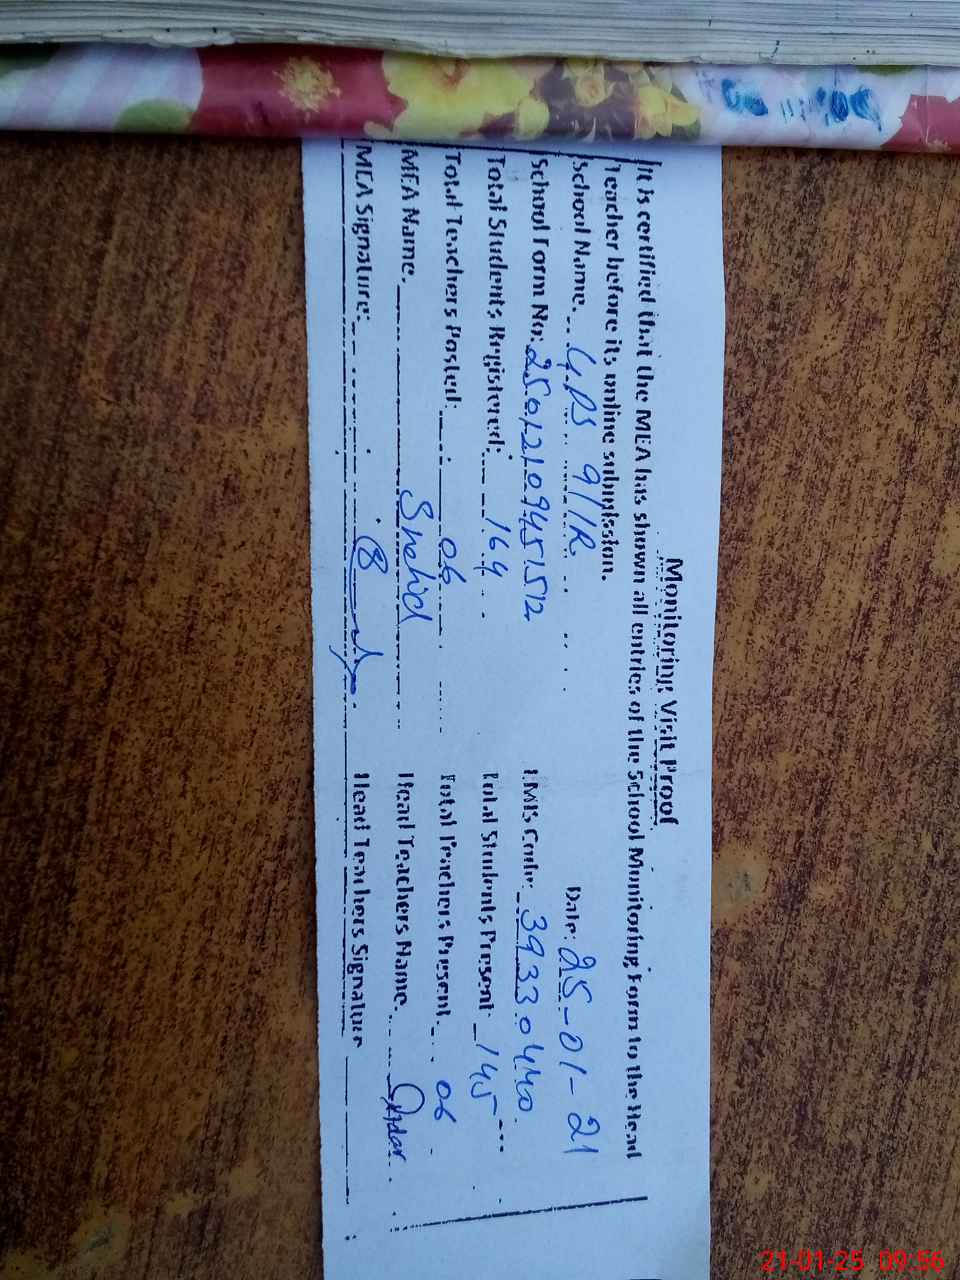 Monitoring Visit Proof
It is certified that the MEA has shown all entries of the School Monitoring Form to the Head
Teacher before its online submission.
School Name. G.P.S 9/1R Date: 25-01-21
School Form No: 25012109451512 EMIS Code: 39330440
Total Students Registered: 164 Total Students Present 145
Total Teachers Posted: 06 Total Teachers Present. 06
MEA Name. Shahid Head Teachers Name.
MEA Signature: Head Teachers Signature
21-01-25 09:56